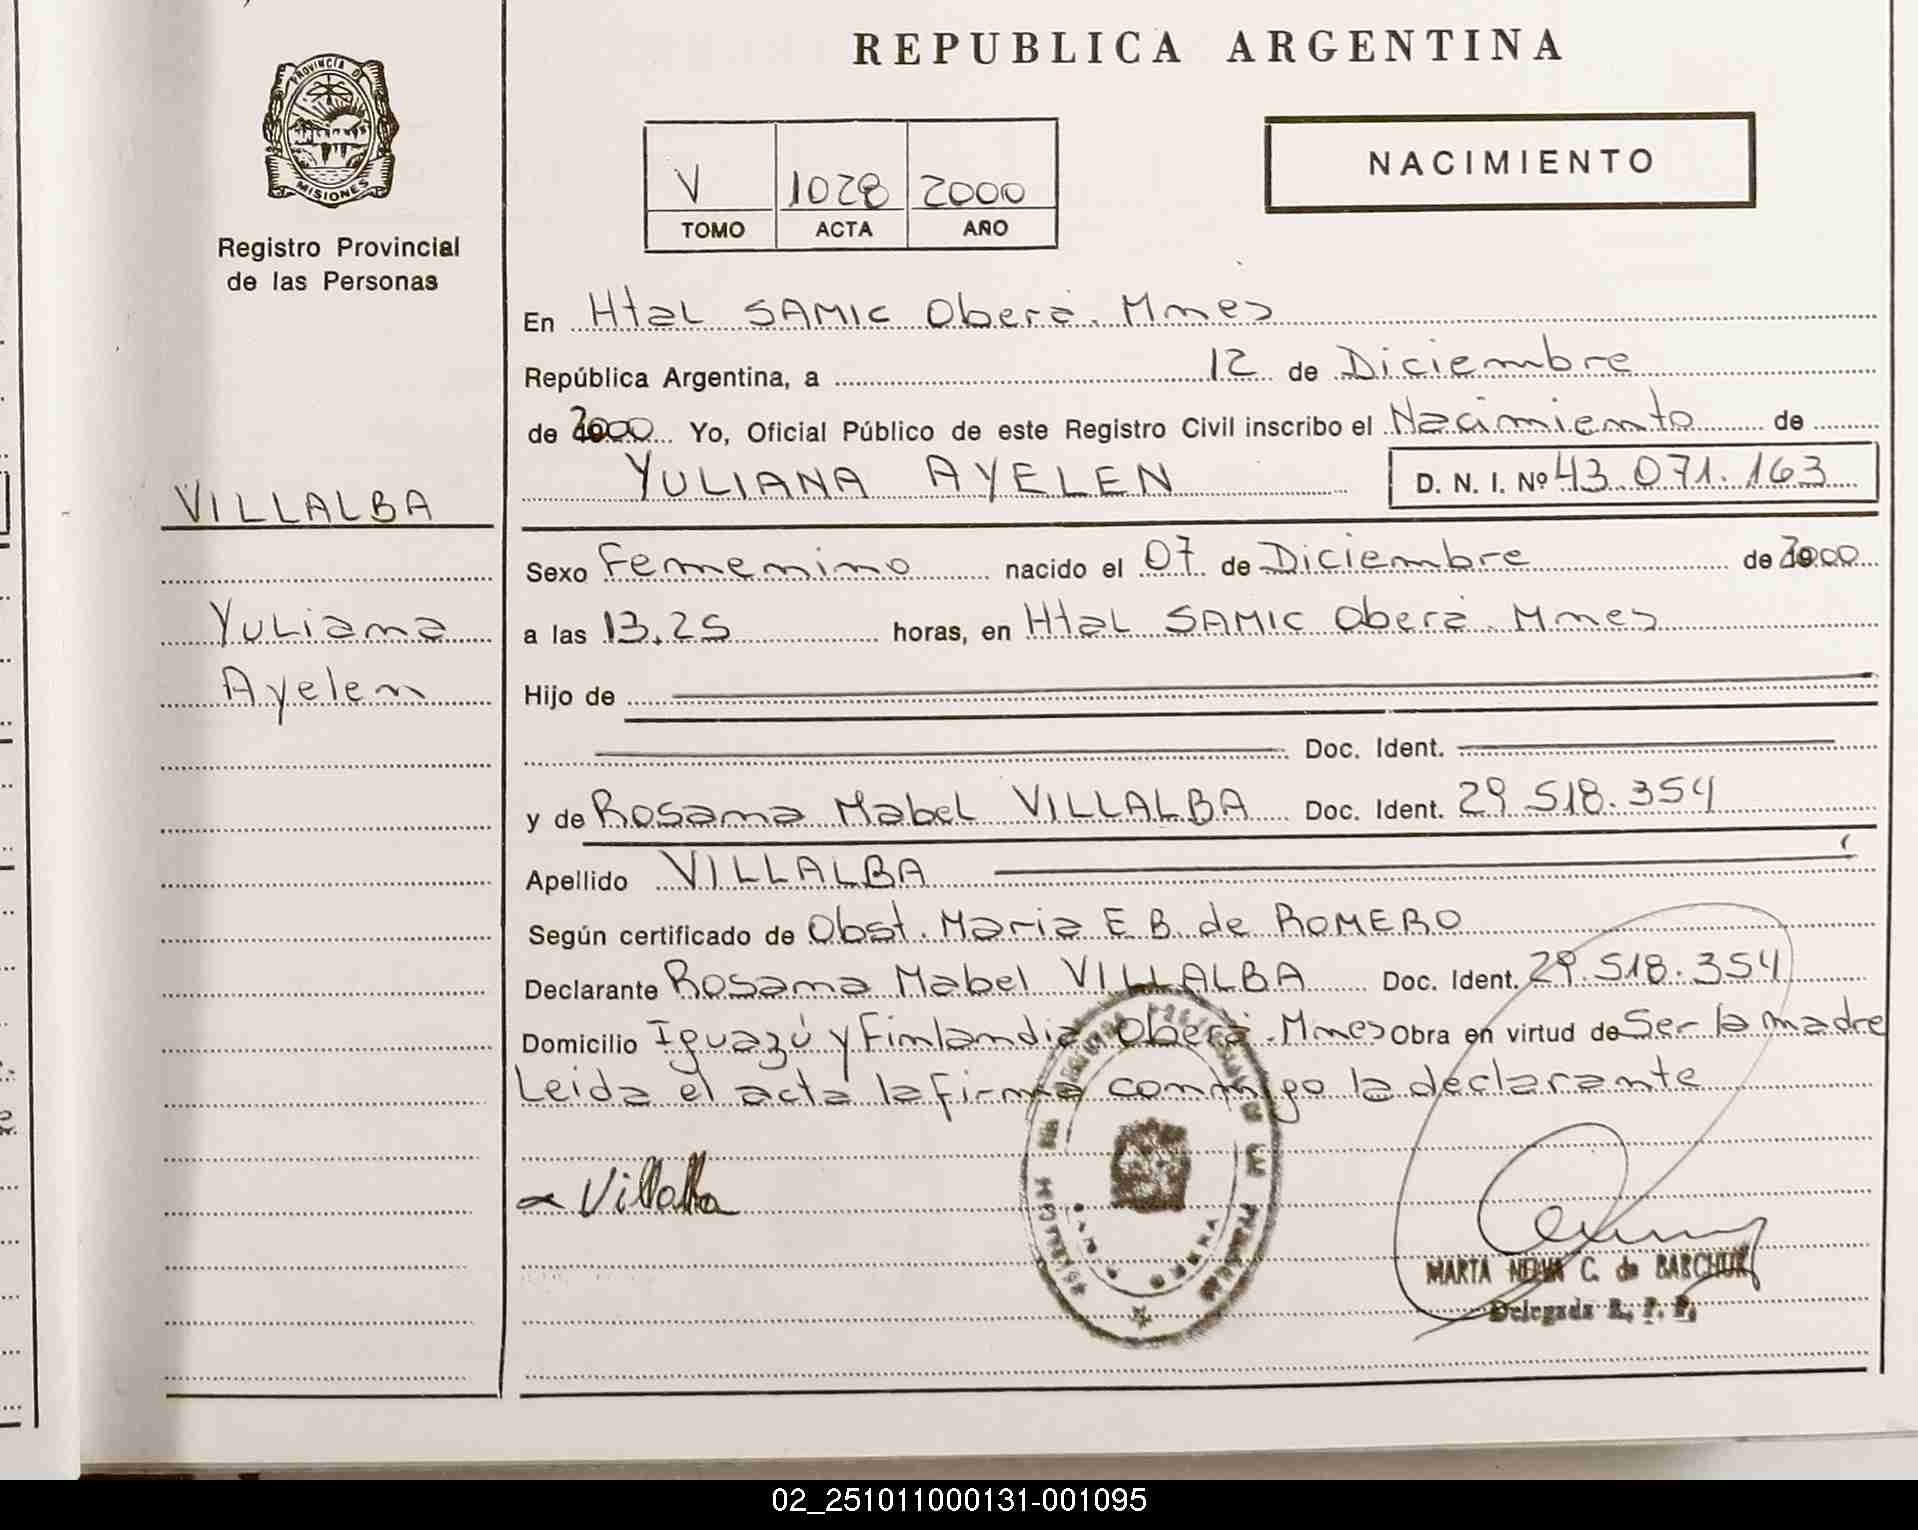 PROVINCIA DE
MISIONES
Registro Provincial
de las Personas
VILLALBA
Yuliana
Ayelen
REPUBLICA ARGENTINA
V 1028 2000
TOMO ACTA AÑO
NACIMIENTO
En Htal SAMIC Oberá. Mnes
República Argentina, a 12 de Diciembre
de 2000 Yo, Oficial Público de este Registro Civil inscribo el Nacimiento de
YULIANA AYELEN D. N. I. Nº 43.071.163
Sexo Femenino nacido el 07 de Diciembre de 2000
a las 13.25 horas, en Htal SAMIC Oberá. Mnes
Hijo de
Doc. Ident.
y de Rosana Mabel VILLALBA Doc. Ident. 29.518.354
Apellido VILLALBA
Según certificado de Obst. Maria E B. de ROMERO
Declarante Rosana Mabel VILLALBA Doc. Ident. 29.518.354
Domicilio Iguazú y Finlandia Oberá. Mnes Obra en virtud de Ser la madre
Leida el acta la firma conmigo la declarante
Villalba
MARTA C. de BARCHUK
Delegada R. P. P.
02_251011000131-001095